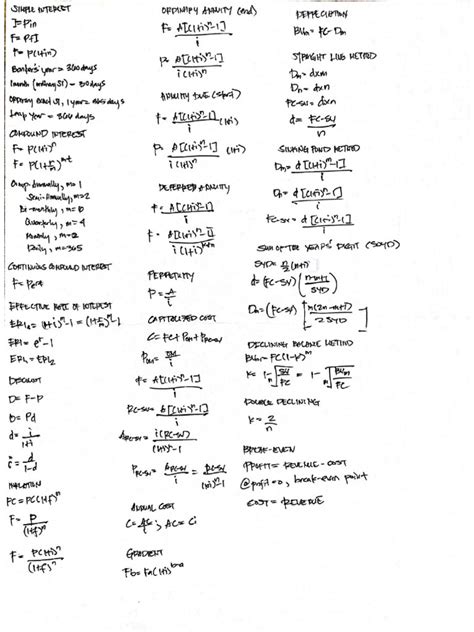 SIMPLE INTEREST
I = Pin
F = P+I
F = P(1+in)
Bankers' year = 360 days
1 month (ordinary SI) = 30 days
Ordinary exact SI, 1 year = 365 days
Leap year = 366 days
COMPOUND INTEREST
F = P(1+i)ⁿ
Comp. Annually, m=1
Semi-Annually, m=2
Bi-monthly, m=6
Quarterly, m=4
Monthly, m=12
Daily, m=365
CONTINUOUS COMPOUND INTEREST
EFFECTIVE RATE OF INTEREST
ERI = eʳ-1
ERI₁ = ERI₂
DISCOUNT
D = F-P
D = Pd
d = i/(1+i)
i = d/(1-d)
INFLATION
FC = PC(1+f)ⁿ
F = P/(1+f)ⁿ
F = P(1+i)ⁿ/(1+f)ⁿ
ORDINARY ANNUITY (end)
F = A[(1+i)ⁿ-1]/i
P = A[(1+i)ⁿ-1]/i(1+i)ⁿ
ANNUITY DUE (start)
F = A[(1+i)ⁿ-1]/i (1+i)
P = A[(1+i)ⁿ-1]/i(1+i)ⁿ (1+i)
DEFERRED ANNUITY
F = A[(1+i)ⁿ-1]/i
PERPETUITY
P = A/i
CAPITALIZED COST
ANNUAL COST
AC = Ci
GRADIENT
DEPRECIATION
BVm = FC-Dm
STRAIGHT LINE METHOD
Dm = dxm
Dn = dxn
FC-SV = dxn
d = FC-SV/n
SINKING FUND METHOD
Dm = d[(1+i)ᵐ-1]/i
Dn = d[(1+i)ⁿ-1]/i
FC-SV = d[(1+i)ⁿ-1]/i
SUM OF THE YEAR'S DIGIT (SOYD)
SYD = n/2 (n+1)
d = (FC-SV) (n-m+1/SYD)
Dm = (FC-SV) [m(2n-m+1)/2 SYD]
DECLINING BALANCE METHOD
BVm = FC(1-k)ᵐ
k = 1 - ⁿ√(SV/FC) = 1 - ᵐ√(BVm/FC)
DOUBLE DECLINING
k = 2/n
BREAK-EVEN
PROFIT = REVENUE - COST
@ profit = 0, break-even point
COST = REVENUE